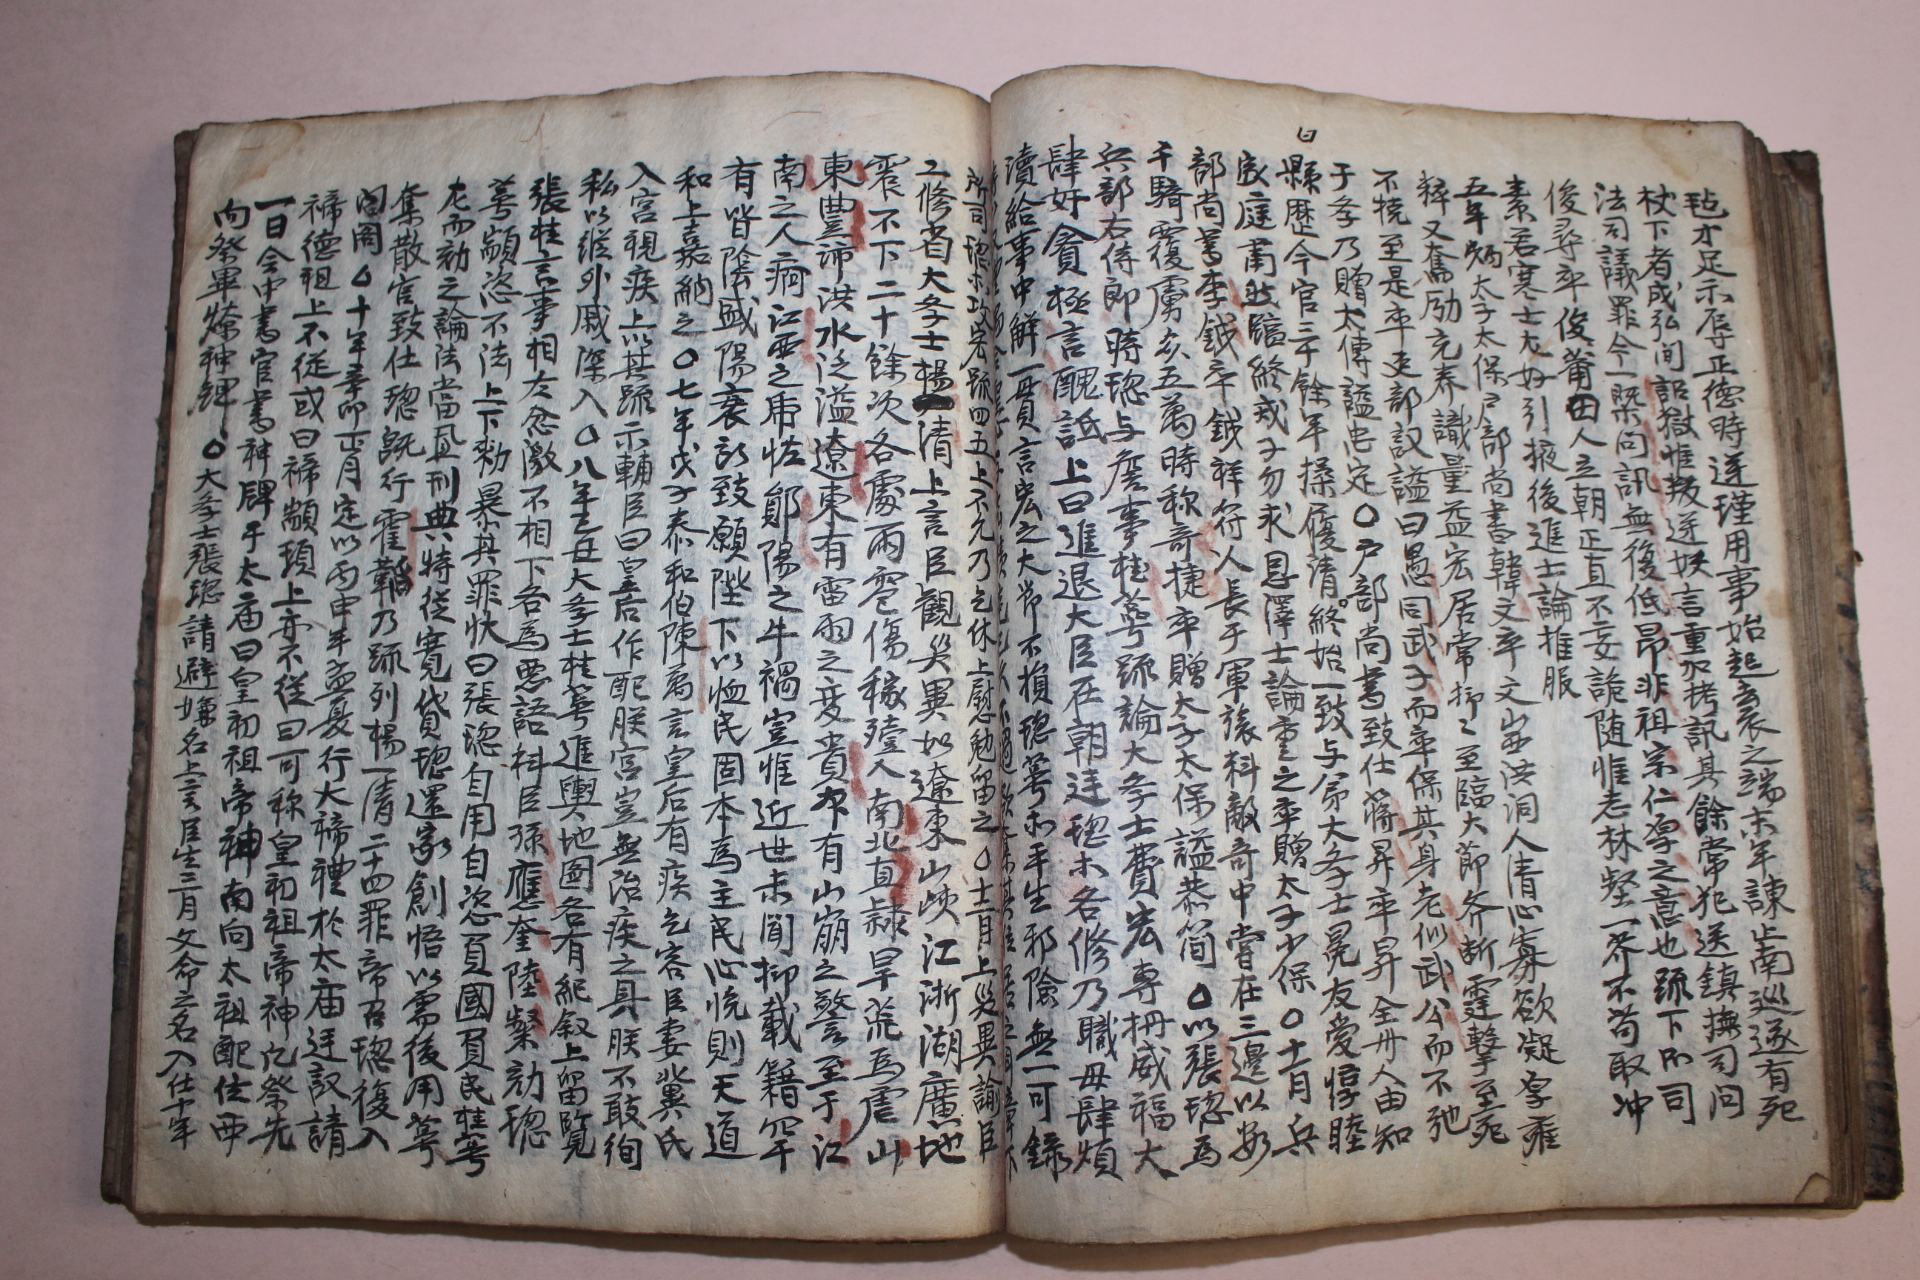 曰
毡才足示辱正德時逆瑾用事始起去衣之端末年諫止南巡逐有死
杖下者成弘间詔獄惟叛逆妖言重加拷訊其餘常犯送鎮撫司问
法司議罪今一槩问訊無後低昂非祖宗仁厚之意也疏下所司
俊尋卒俊莆田人立朝正直不妄詭随惟志林壑一芥不苟取冲
素若寒士尤好引掖後進士論推服
五年炳太子太保尸部尚書韓文卒文山西洪洞人清心寡欲凝字雍
粹又奮励充养識量益宏居常抑〻至臨大節斧斬霆擊至死
不撓至是卒吏部议謚曰愚同武子而卒保其身老似武公而不弛
于学乃贈太傅謚忠定〇户部尚書致仕蔣昇卒昇全州人由知
縣歴今官三十餘年操履清終始一致与弟大学士冕友爱惇睦
家庭肅然臨終戒子勿求恩澤士論重之卒贈太子少保〇十月兵
部尚書李鉞卒鉞祥符人長于軍旅料敵奇中嘗在三邊以数
千騎覆虜众五萬時称奇捷卒贈太子太保謚恭简〇以張璁為
兵部右侍郎時璁与詹事桂萼疏論大学士費宏專擅威福大
肆奸貪極言醜詆上曰進退大臣在朝廷璁ホ各修乃職毋肆煩
瀆給事中解一貫言宏之大節不損璁萼ホ平生邪險無一可錄
所司璁ホ攻宏疏四五上不允乃乞休上慰勉留之〇十二月上災異諭臣
工修省大学士楊一清上言臣觀災異如遼東山峡江浙湖廣地
震不下二十餘次各處雨雹傷稼殪人南北直隷旱荒為虐山
東豊沛洪水泛溢遼東有雷羽之变貴州有山崩之警至于江
南之人痾江西之馬怪鄖陽之牛禍豈惟近世未聞抑載籍罕
有皆陰盛陽衰所致願陛下以恤民固本為主民心悦則天道
和上嘉納之〇七年戊子泰和伯陳萬言皇后有疾乞容臣妻冀氏
入宫視疾上以其疏示輔臣曰皇后作配朕宫豈無治疾之具朕不敢徇
私以縱外戚深入〇八年己丑大学士桂萼進輿地圖各有紀叙上留覧
張桂言事相左忿激不相下各為悪語科臣孫應奎陸粲劾璁
萼顓恣不法上下勅暴其罪状曰張璁自用自恣負國負民桂萼
尤而効之論法當寘刑典特從寛貸璁還家創悟以需後用萼
奪散官致仕璁既行霍韜乃疏列楊一清二十四罪帝召璁復入
阁〇十年辛卯正月定以丙申年孟夏行大禘禮於太庙廷议請
禘德祖上不從或曰禘顓頊上亦不從曰可称皇初祖帝神凡祭先
一日令中書官書神牌于太庙曰皇初祖帝神南向太祖配位西
向祭畢燎神牌〇大学士張璁請避嫌名上言臣生三月父命之名入仕十年